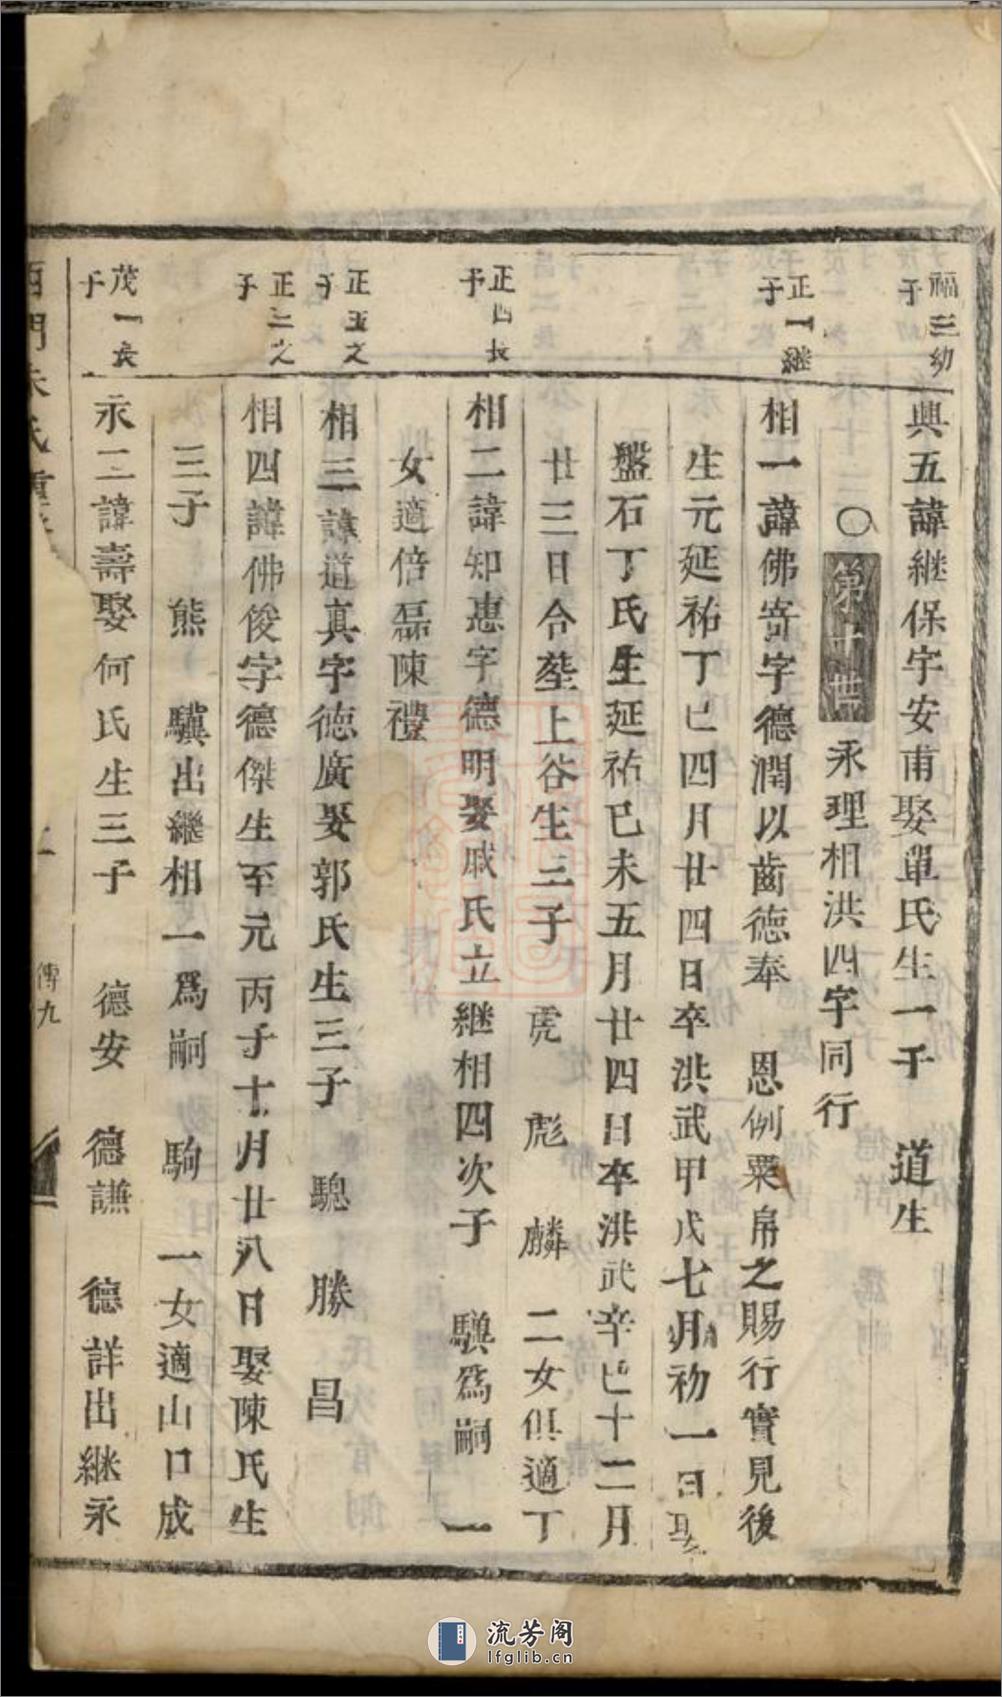 福三幼子
興五諱継保字安甫娶單氏生一子 道生
〇第十世 永理相洪四字同行
正一継子
相一諱佛寄字德潤以齒德奉 恩例粟帛之賜行實見後
生元延祐丁巳四月廿四日卒洪武甲戌七月初一日娶
盤石丁氏生延祐己未五月廿四日卒洪武辛巳十二月
廿三日合塟上谷生三子 虎 彪 麟 二女俱適丁
正四長子
相二諱知惠字德明娶戚氏立継相四次子 驥爲嗣 一
女適倍磊陳禮
正五之子
相三諱道真字德廣娶郭氏生三子 驄 勝 昌
正三之子
相四諱佛俊字德傑生至元丙子十月廿八日娶陳氏生
三子 熊 驥出継相一爲嗣 駒 一女適山口成
茂一長子
永二諱壽娶何氏生三子 德安 德謙 德詳出継永
傳九
流芳阁
lfglib.cn